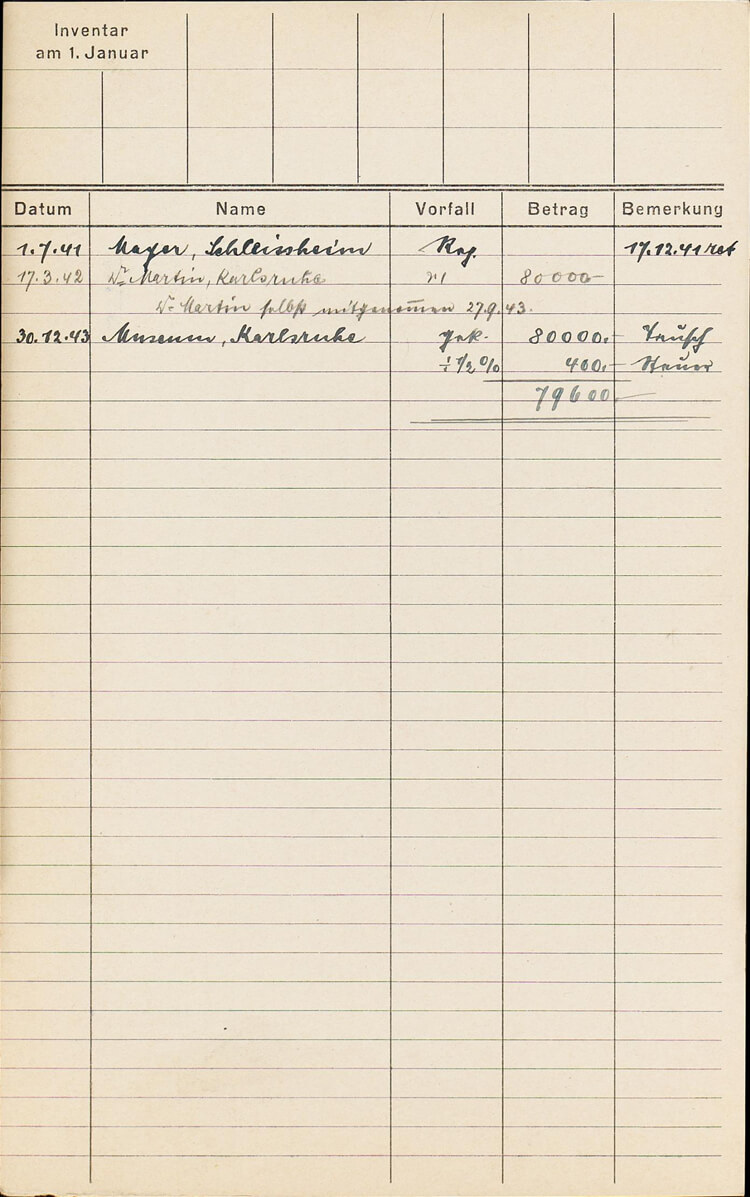 Inventar
am 1. Januar
Datum Name Vorfall Betrag Bemerkung
1.7.41 Mayer, Schleissheim Rep. 17.12.41 ret
17.3.42 Dr Martin, Karlsruhe 80000-
Dr Martin selbst mitgenommen 27.9.43.
30.12.43 Museum, Karlsruhe gek. 80000.- Tausch
÷ 1/2% 400.- Steuer
79600.-